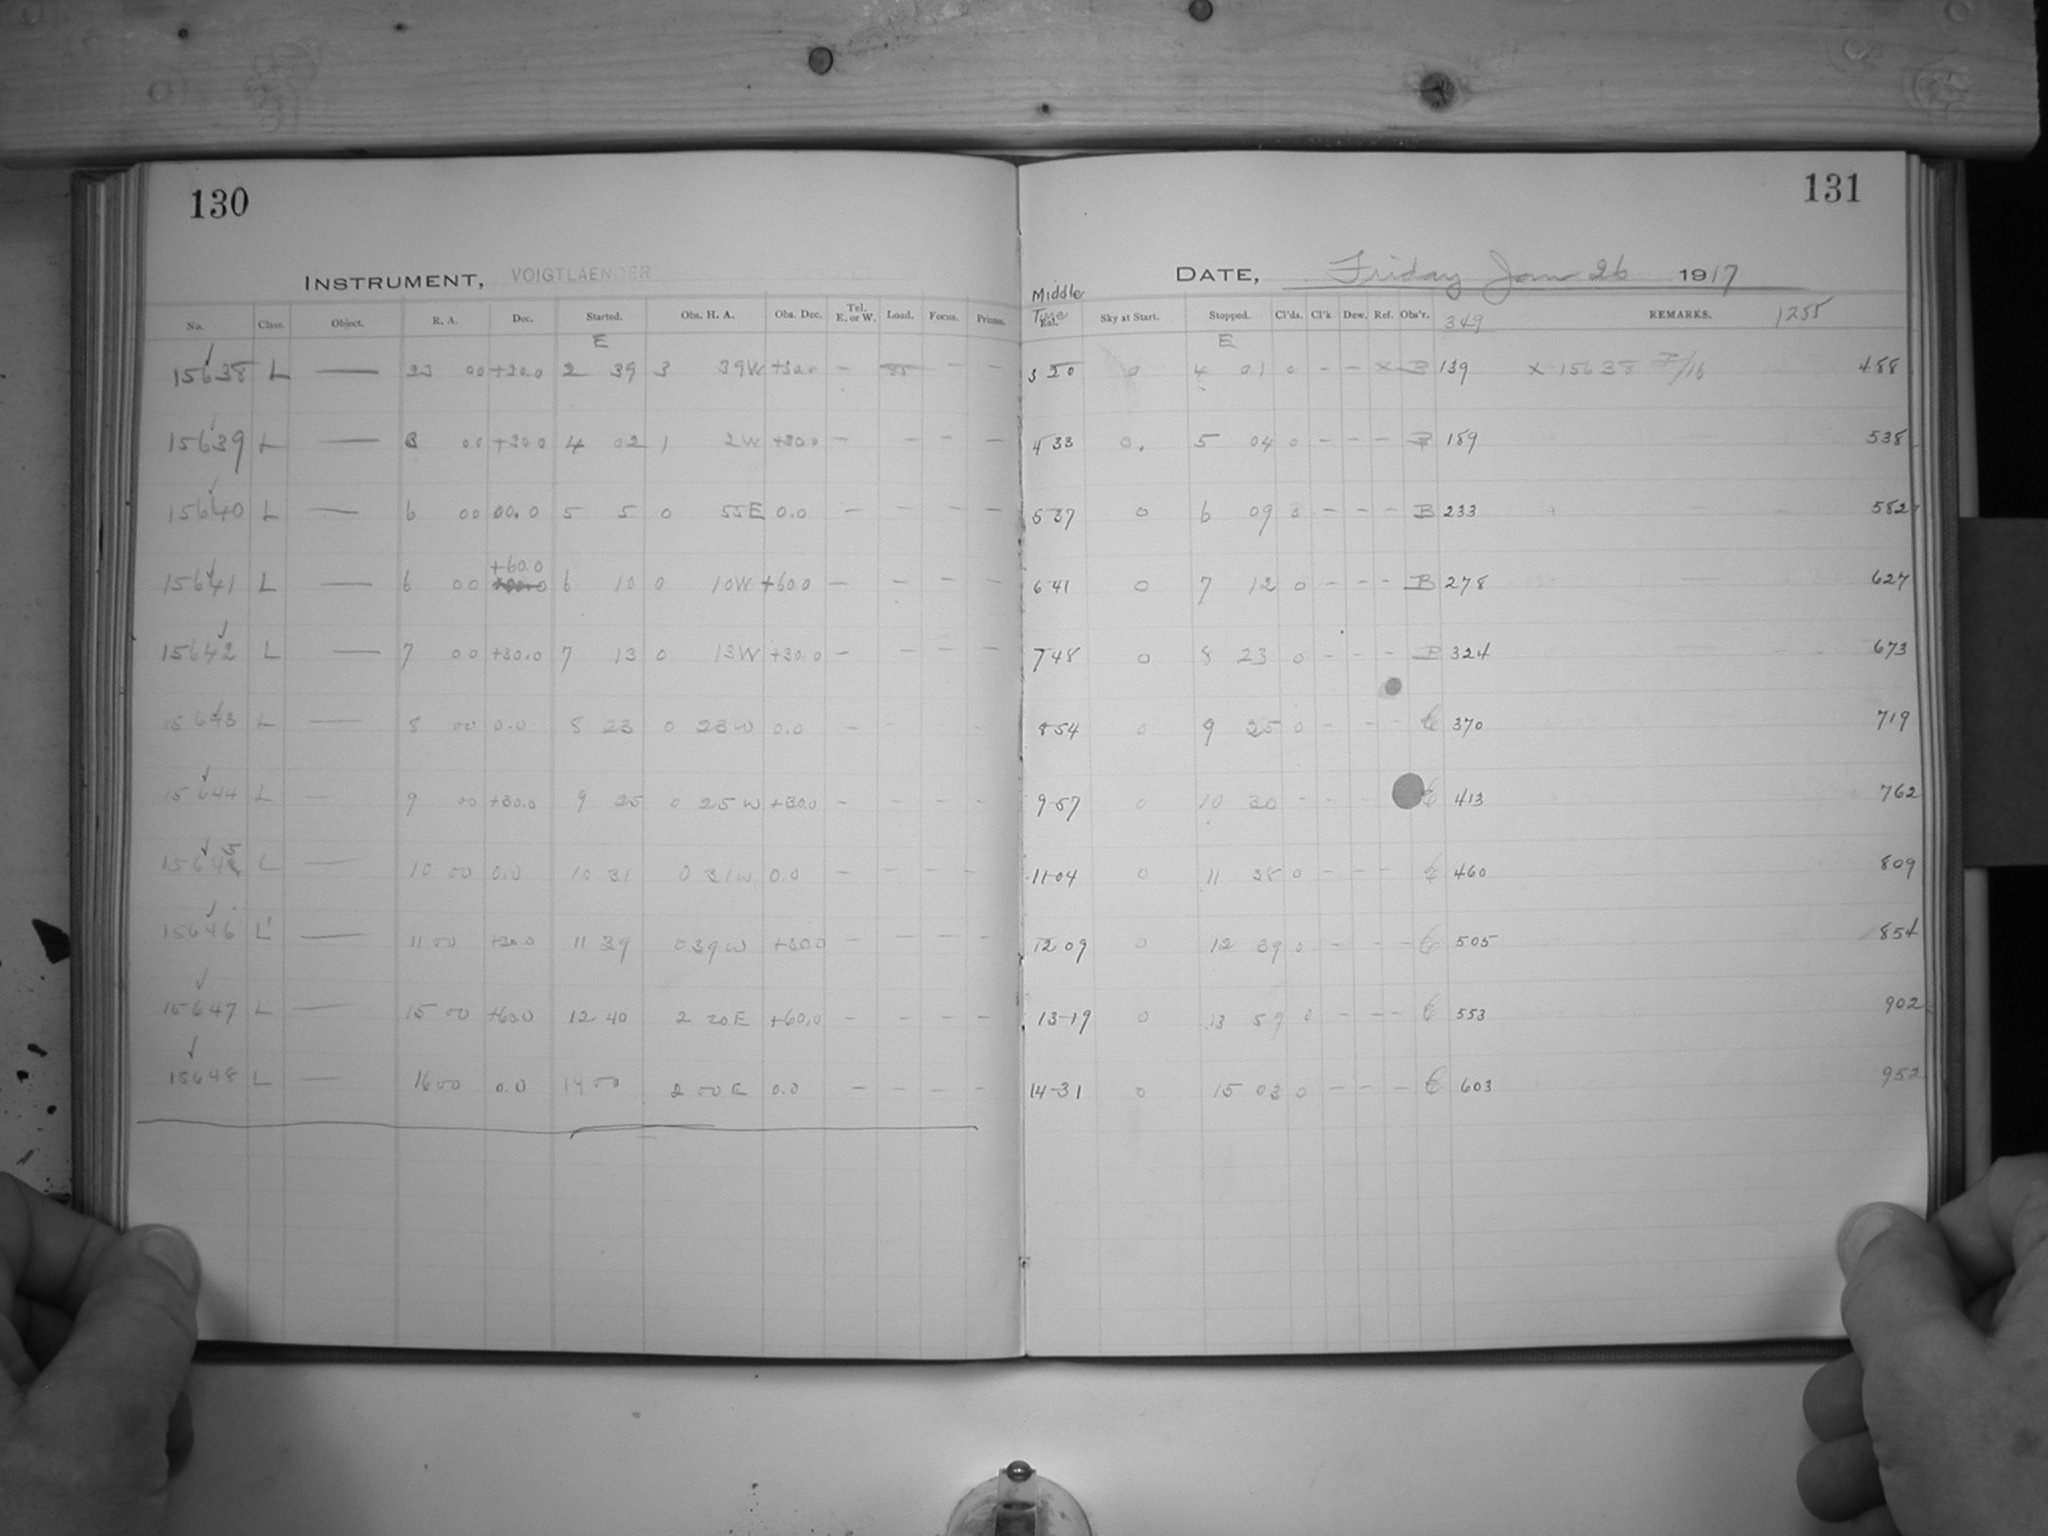 130
131
INSTRUMENT, VOIGTLAENDER
DATE, Friday Jan 26 1917
No. Class. Object. R. A. Dec. Started. Obs. H. A. Obs. Dec. Tel. E. or W. Load. Focus. Prisms. Middle Time Sky at Start. Stopped. Cl'ds. Cl'k Dew. Ref. Obs'r. 349 REMARKS. 1255
E E
15638 L — 23 00 +30.0 2 39 3 39W +30.0 – – – 3 20 0 4 01 0 – – x B 139 x 15638 F/16 488
15639 L — 3 00 +30.0 4 02 1 2W +30.0 – – – – 4 33 0. 5 04 0 – – – B 189 538
15640 L — 6 00 00.0 5 5 0 55E 0.0 – – – – 5 37 0 6 09 0 – – – B 233 582
+60.0
15641 L — 6 00 6 10 0 10W +60.0 – – – – 6 41 0 7 12 0 – – – B 278 627
15642 L — 7 00 +30.0 7 13 0 13W +30.0 – – – – 7 48 0 8 23 0 – – – B 324 673
15643 L — 8 00 0.0 8 23 0 23W 0.0 – – 8 54 0 9 25 0 – – – 370 719
15644 L — 9 00 +30.0 9 25 0 25W +30.0 – – – – 9-57 0 10 30 – – – 413 762
15645 L — 10 00 0.0 10 31 0 31W 0.0 – – – – 11-04 0 11 38 0 – – – 460 809
15646 L — 11 00 +30.0 11 39 0 39W +30.0 – – – – 12 09 0 12 39 0 – – – 505 854
15647 L — 15 00 +60.0 12 40 2 20E +60.0 – – – – 13-19 0 13 59 0 – – – 553 902
15648 L — 16 00 0.0 14 00 2 00E 0.0 – – – – 14-31 0 15 03 0 – – – 603 952